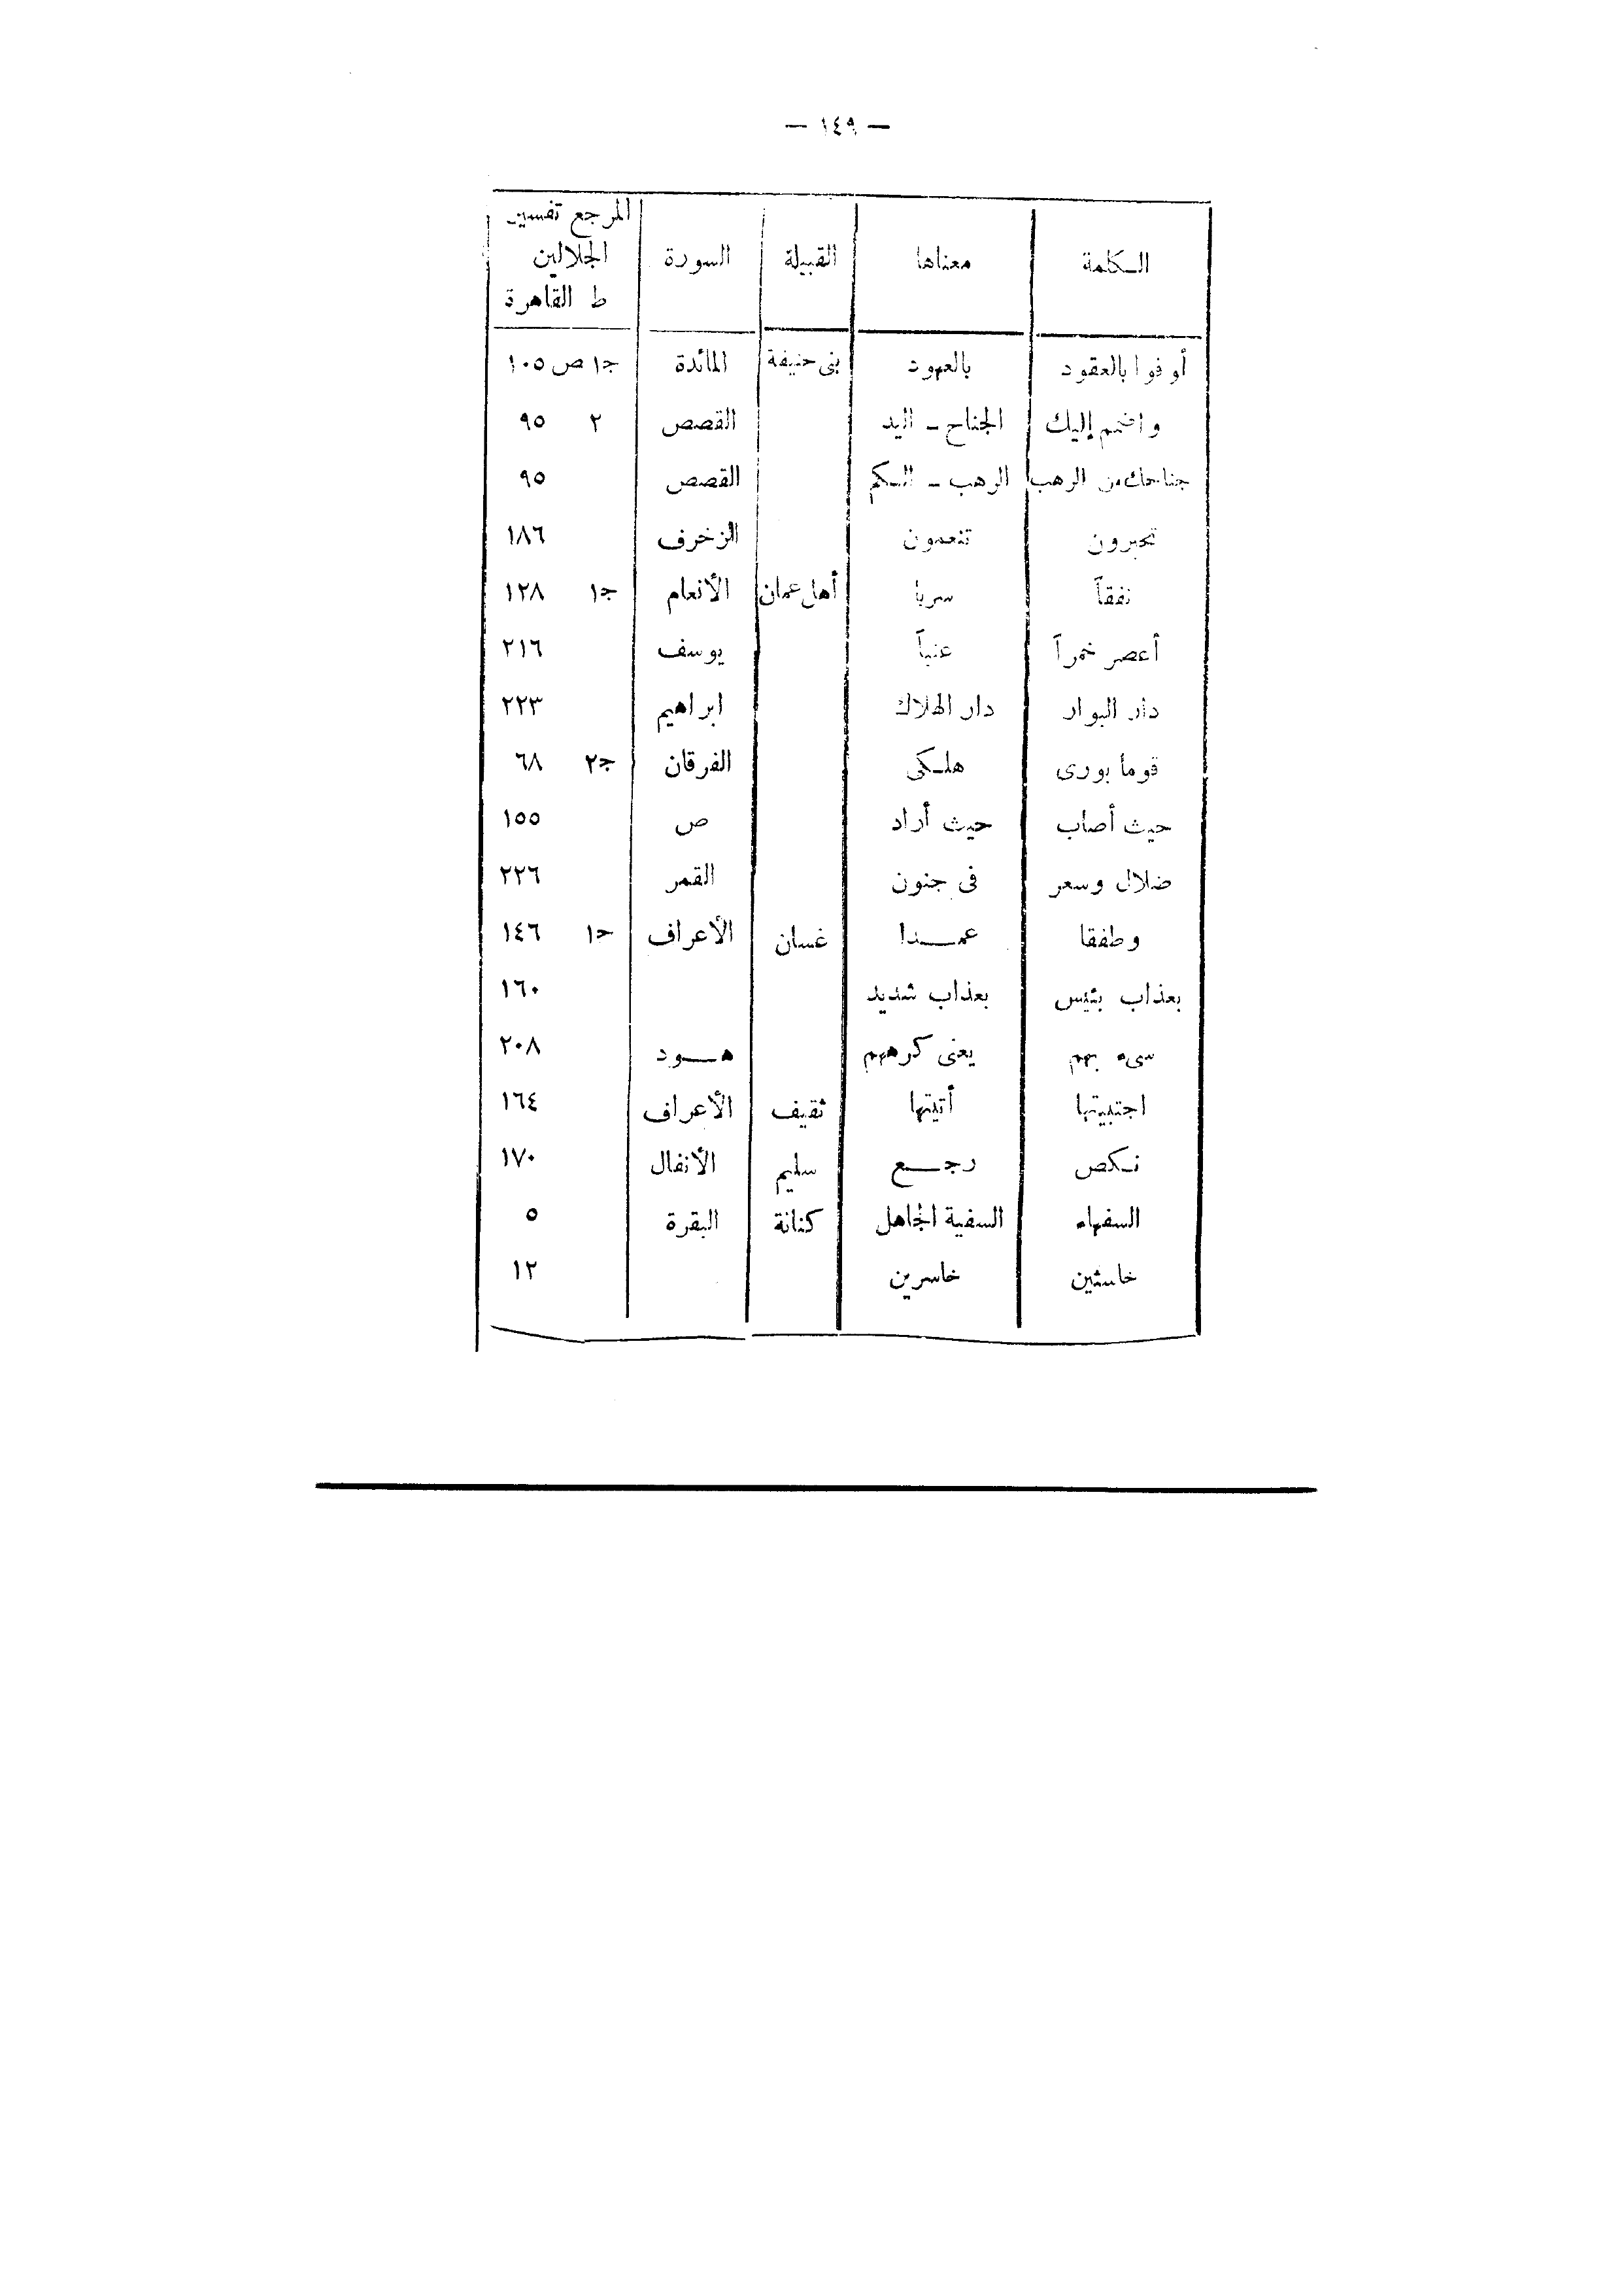 — ١٤٩ —
الكلمة معناها القبيلة السورة المرجع تفسير الجلالين ط القاهرة
أوفوا بالعقود بالعهود بنى حنيفة المائدة ج١ ص ١٠٥
واضمم إليك الجناح - اليد القصص ٢ ٩٥
جناحك من الرهب الرهب - الكم القصص ٩٥
تحبرون تنعمون الزخرف ١٨٦
نفقاً سربا أهل عمان الأنعام ج١ ١٢٨
أعصر خمراً عنباً يوسف ٢١٦
دار البوار دار الهلاك ابراهيم ٢٢٣
قوما بورى هلكى الفرقان ج٢ ٦٨
حيث أصاب حيث أراد ص ١٥٥
ضلال وسعر فى جنون القمر ٢٢٦
وطفقا عمدا غسان الأعراف ح١ ١٤٦
بعذاب بئيس بعذاب شديد ١٦٠
سىء بهم يعنى كرههم هود ٢٠٨
اجتبيتها أتيتها ثقيف الأعراف ١٦٤
نكص رجع سليم الأنفال ١٧٠
السفهاء السفية الجاهل كنانة البقرة ٥
خاسئين خاسرين ١٢